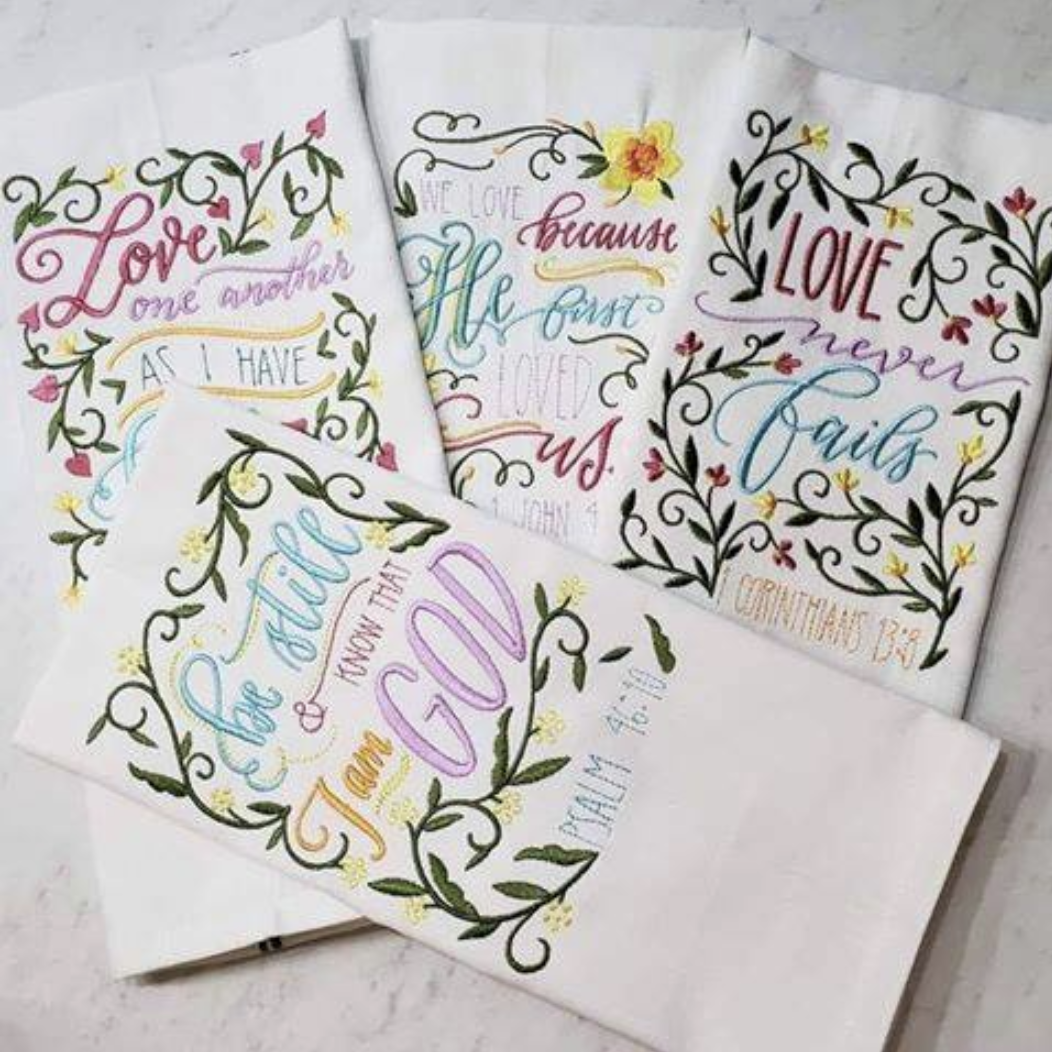 Love
one another
AS I HAVE
WE LOVE
because
He first
LOVED
us.
1 JOHN 4
LOVE
never
fails
1 CORINTHIANS 13:8
be still
& KNOW THAT
I am
GOD
PSALM 46:10